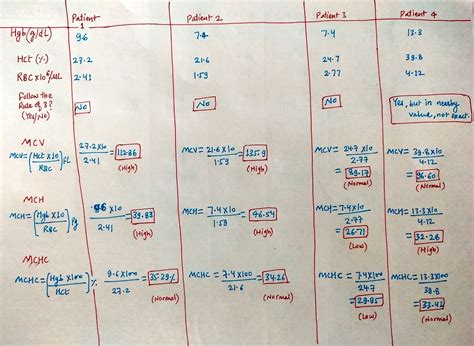 Patient 1 Patient 2 Patient 3 Patient 4
Hgb (g/dL) 9.6 7.4 7.4 13.3
Hct (%) 27.2 21.6 24.7 39.8
RBC x10⁶/µL 2.41 1.59 2.77 4.12
Follow the
Rule of 3?
(Yes/No)
No
No
No
Yes, but in nearby
value, not exact.
MCV
MCV = (Hct x10 / RBC) fL
27.2 x10 / 2.41 = 112.86
(High)
MCV = 21.6 x10 / 1.59 = 135.9
(High)
MCV = 24.7 x10 / 2.77
= 89.17
(Normal)
MCV = 39.8 x10 / 4.12
= 96.60
(Normal)
MCH
MCH = (Hgb x10 / RBC) Pg
9.6 x10 / 2.41 = 39.83
(High)
MCH = 7.4 x10 / 1.59 = 46.54
(High)
MCH = 7.4 x10 / 2.77
= 26.71
(Low)
MCH = 13.3 x10 / 4.12
= 32.28
(High)
MCHC
MCHC = (Hgb x100 / Hct) %
9.6 x100 / 27.2 = 35.29%
(Normal)
MCHC = 7.4 x100 / 21.6 = 34.26
(Normal)
MCHC = 7.4 x100 / 24.7
= 29.95
(Low)
MCHC = 13.3 x100 / 39.8
= 33.41
(Normal)